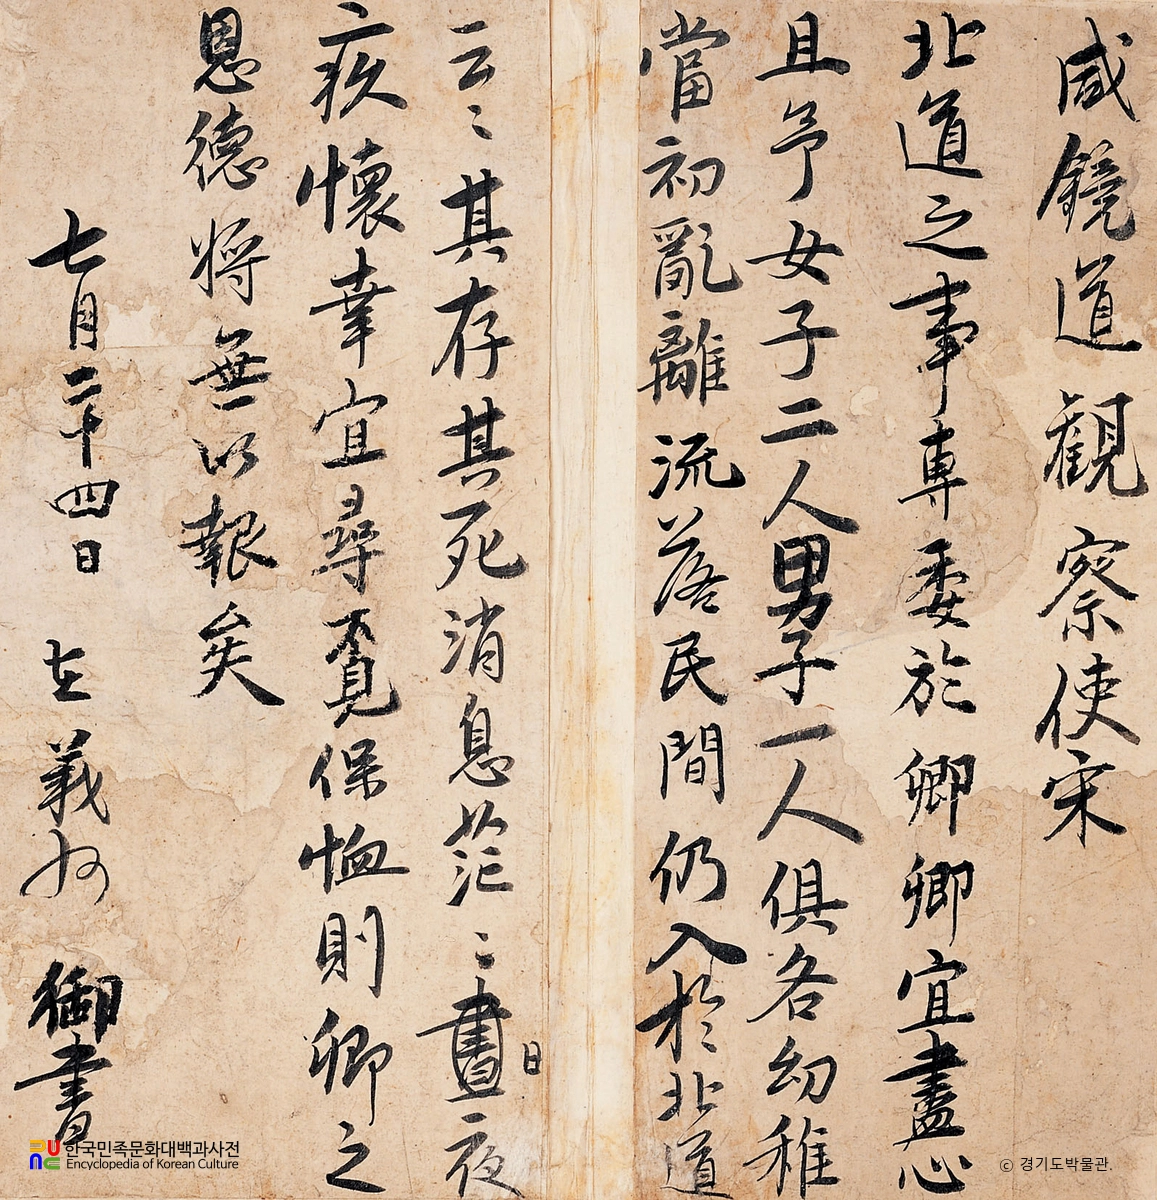 咸鏡道觀察使宋
北道之事專委於卿卿宜盡心
且予女子二人男子一人俱各幼稚
當初亂離流落民間仍入於北道
云〻其存其死消息茫〻晝夜
日
疚懷幸宜尋覓保恤則卿之
恩德將無以報矣
七月二十四日 在義州 御書
한국민족문화대백과사전
Encyclopedia of Korean Culture
© 경기도박물관.